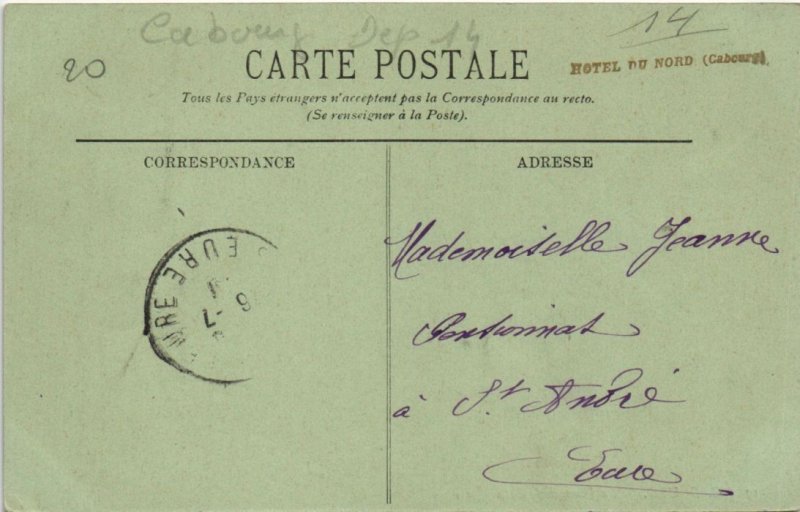 Cabourg Dep 14
14
20
CARTE POSTALE
HOTEL DU NORD (Cabourg)
Tous les Pays étrangers n'acceptent pas la Correspondance au recto.
(Se renseigner à la Poste).
CORRESPONDANCE
ADRESSE
EURE
Mademoiselle Jeanne
à St André
Eure